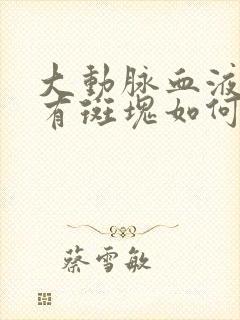 大動脉血液
有斑塊如何
蔡雪敏